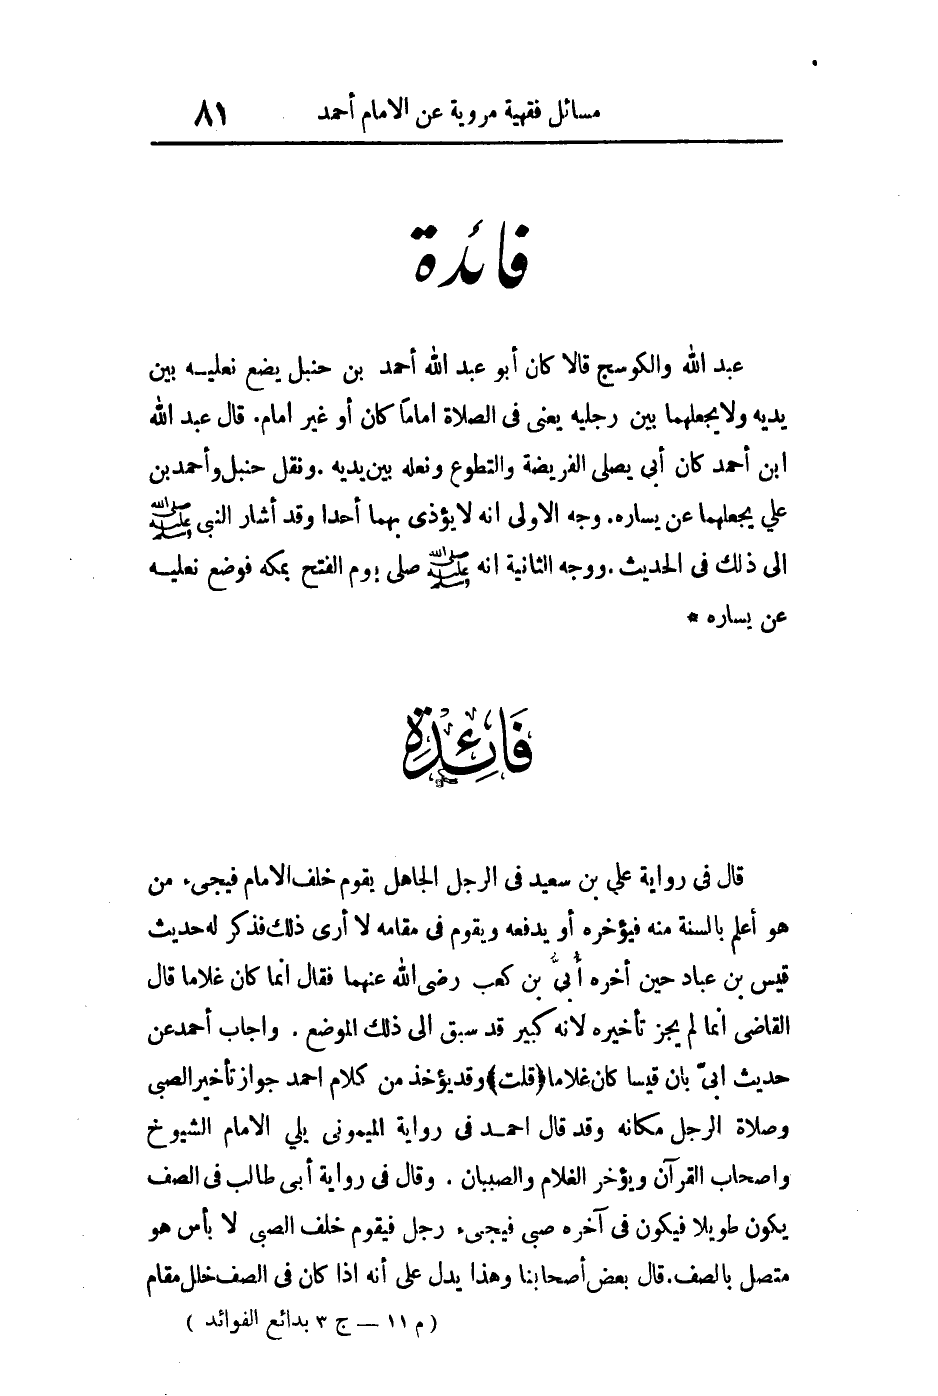 مسائل فقهية مروية عن الامام أحمد ٨١
فائدة
عبد الله والكوسج قالا كان أبو عبد الله أحمد بن حنبل يضع نعليه بين
يديه ولا يجعلهما بين رجليه يعنى فى الصلاة اماماً كان أو غير امام. قال عبد الله
ابن أحمد كان أبي يصلى الفريضة والتطوع ونعله بين يديه .ونقل حنبل وأحمد بن
علي يجعلهما عن يساره. وجه الاولى انه لا يؤذى بهما أحدا وقد أشار النبى ﷺ
الى ذلك فى الحديث .ووجه الثانية انه ﷺ صلى يوم الفتح بمكه فوضع نعليه
عن يساره *
فَائِدة
قال فى رواية علي بن سعيد فى الرجل الجاهل يقوم خلف الامام فيجىء من
هو أعلم بالسنة منه فيؤخره أو يدفعه ويقوم فى مقامه لا أرى ذلك فذكر له حديث
قيس بن عباد حين أخره أُبيّ بن كعب رضى الله عنهما فقال انما كان غلاما قال
القاضى انما لم يجز تأخيره لانه كبير قد سبق الى ذلك الموضع . واجاب أحمد عن
حديث ابىّ بان قيسا كان غلاما (قلت) وقد يؤخذ من كلام احمد جواز تأخير الصبى
وصلاة الرجل مكانه وقد قال احمد فى رواية الميمونى يلي الامام الشيوخ
واصحاب القرآن ويؤخر الغلام والصبيان . وقال فى رواية أبى طالب فى الصف
يكون طويلا فيكون فى آخره صبي فيجىء رجل فيقوم خلف الصبى لا بأس هو
متصل بالصف. قال بعض أصحابنا وهذا يدل على أنه اذا كان فى الصف خلل مقام
( م ١١ — ج ٣ بدائع الفوائد )